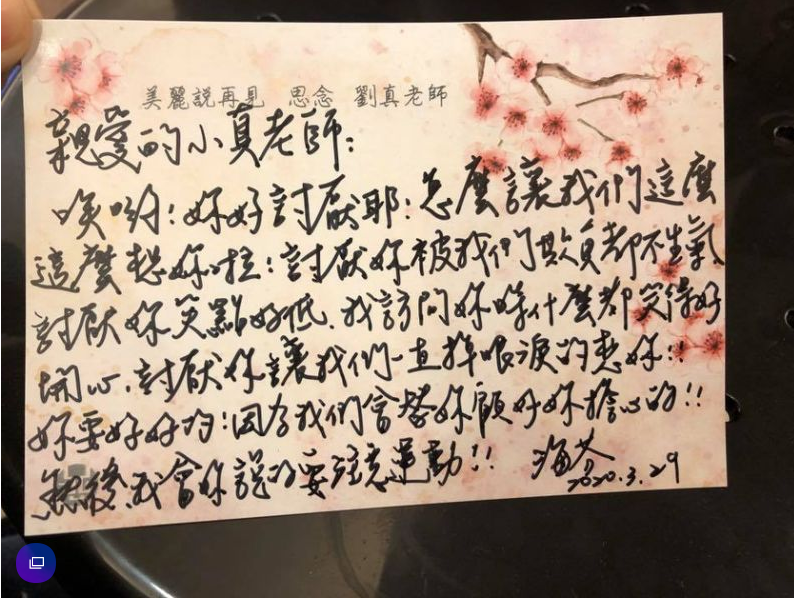 美麗說再見 思念 劉真老師
親愛的小真老師:
唉喲!妳好討厭耶!怎麼讓我們這麼
這麼想妳啦!討厭妳被我們欺負都不生氣
討厭妳笑點好低、我訪問妳時什麼都笑得好
開心、討厭你讓我們一直掉眼淚的想妳!!
妳要好好的!因為我們會替妳顧好妳擔心的!!
然後、我會你說的要注意運動!!
2020.3.29